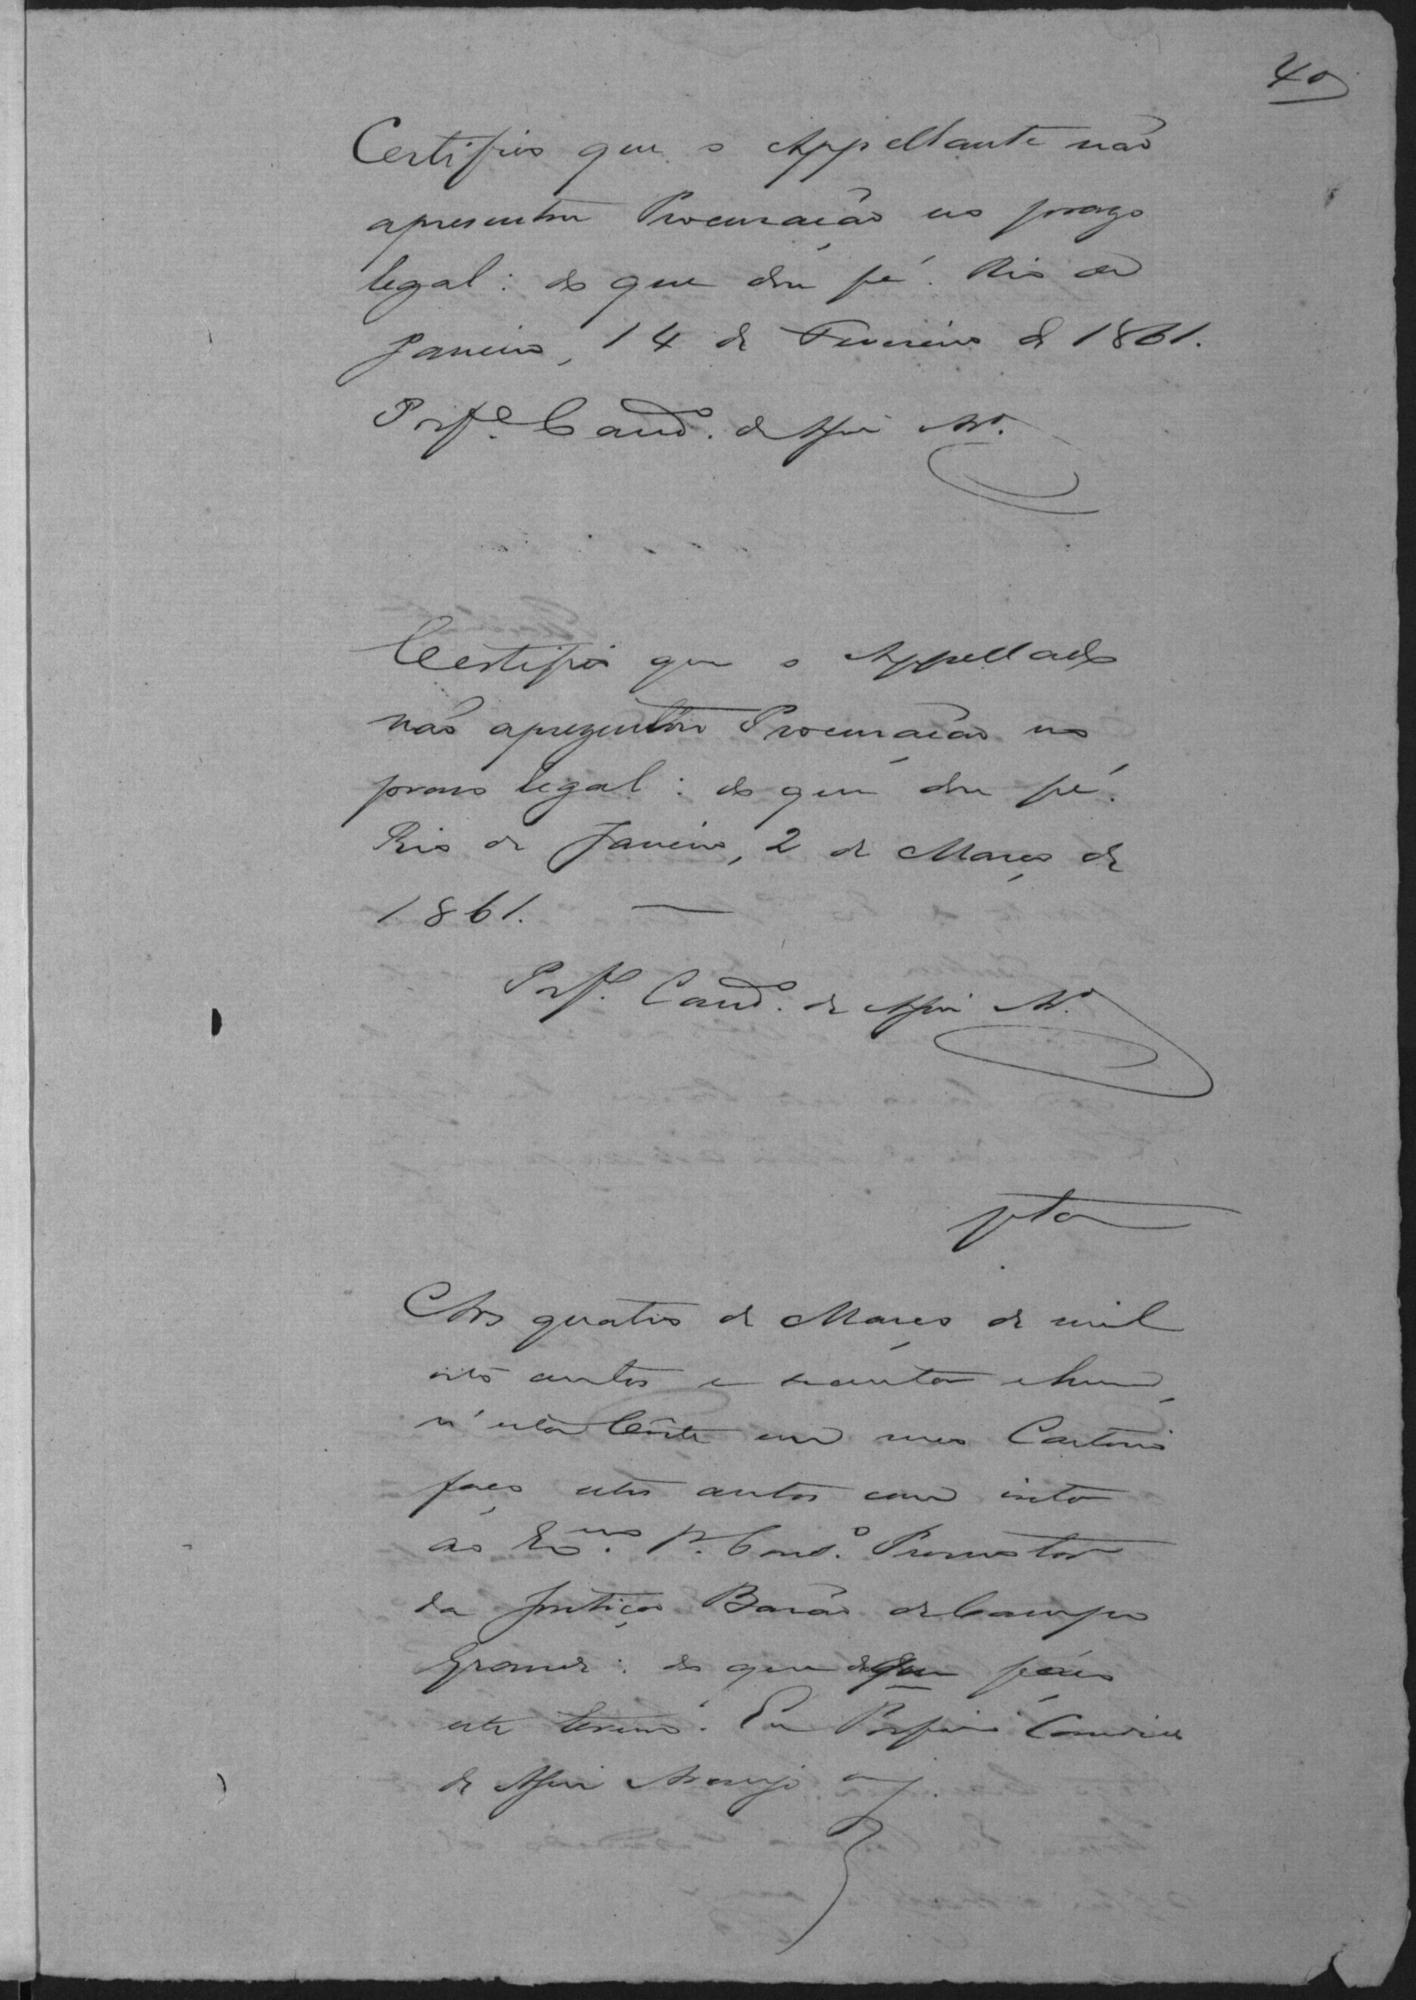 40
Certifico que o Appellante não
apresentou Procuração no prazo
legal: do que dou fé. Rio de
Janeiro, 14 de Fevereiro de 1861.
Porf.º Cand.º de Assis Ar.º
Certifico que o Appellado
não aprezentou Procuração no
prazo legal: do que dou fé.
Rio de Janeiro, 2 de Março de
1861. —
Porf.º Cand.º de Assis Ar.º
Aos quatro de Março de mil
oito centos e secenta e hum,
n'esta Côrte em meo Cartorio
faço estes autos com vista
ao Ex.mo Cons.º Promotor
da Justiça Barão de Campo
Grande: do que faço
este termo. Eu Porfirio Candido
de Assis Araujo